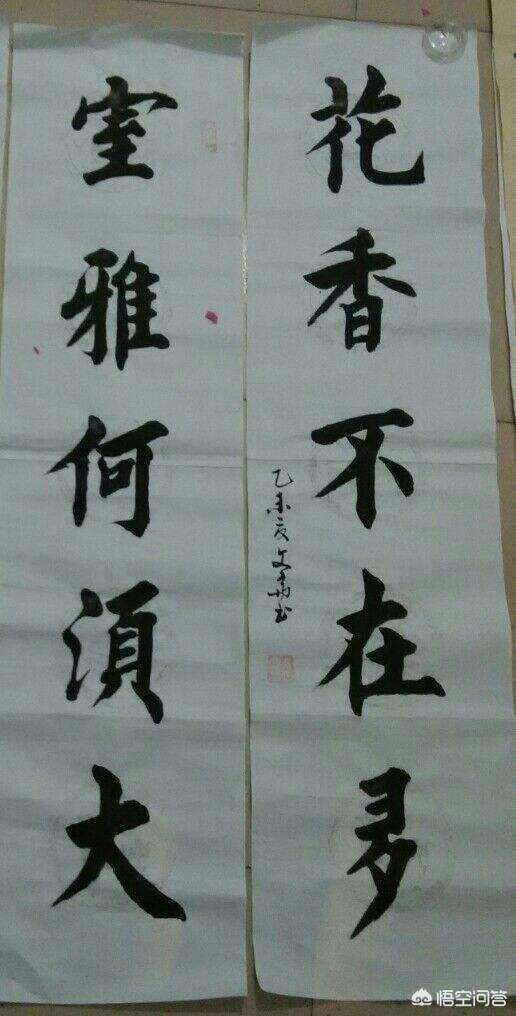 室雅何湏大
花香不在多
乙未夏文书
悟空问答